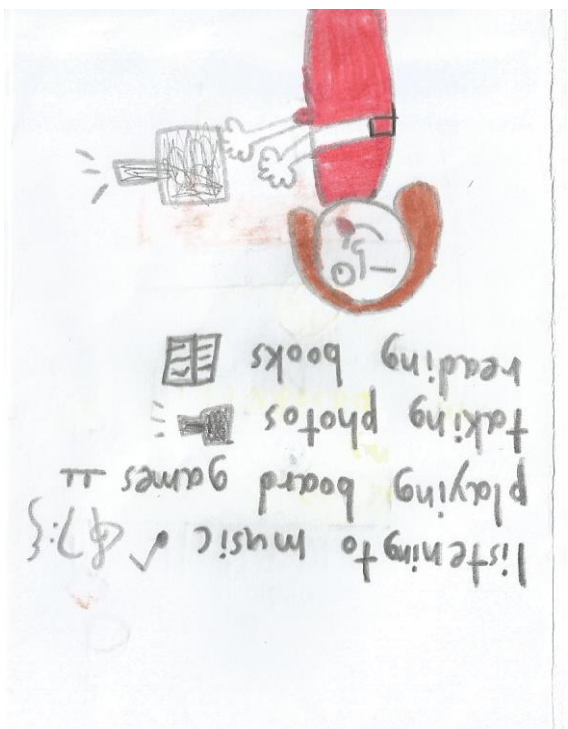 listening to music
playing board games
taking photos
reading books